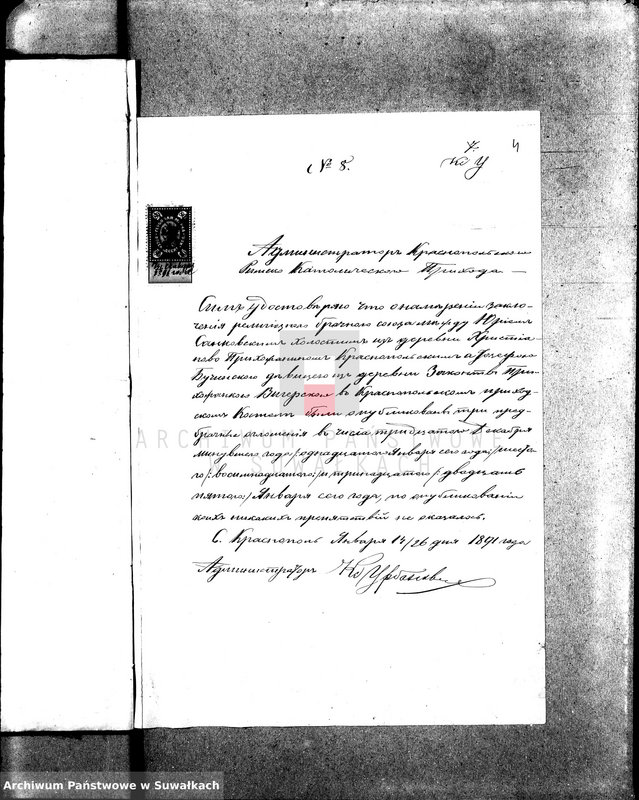 4
№ 8.
Къ У
Администраторъ Краснопольскаго
Римско Католическаго Прихода —
Симъ удостовѣряю что о намѣреніи заклю-
ченія религіознаго брачнаго союза между Юріемъ
Санковскимъ холостымъ изъ деревни Христіа-
ново Прихожаниномъ Краснопольскимъ а Іозефою
Бучинскою дѣвицею изъ деревни Законты При-
хожанкою Вигерскою въ Краснопольскомъ приход-
скомъ Костелѣ были опубликованы три пред-
брачныя оглашенія въ числа тридцатаго Декабря
минувшаго года /:одинадцатаго Января сего года:/ шеста-
го /:восемнадцатаго:/ и тринадцатаго /:двадцать
пятаго:/ Января сего года, по опубликованіи
коихъ никакихъ препятствій не оказалось.
С. Краснополь Января 14/26 дня 1891 года
Администраторъ Кс Урбанови
ARCHIWUM PAŃSTWOWE
SUWAŁKACH
Archiwum Państwowe w Suwałkach